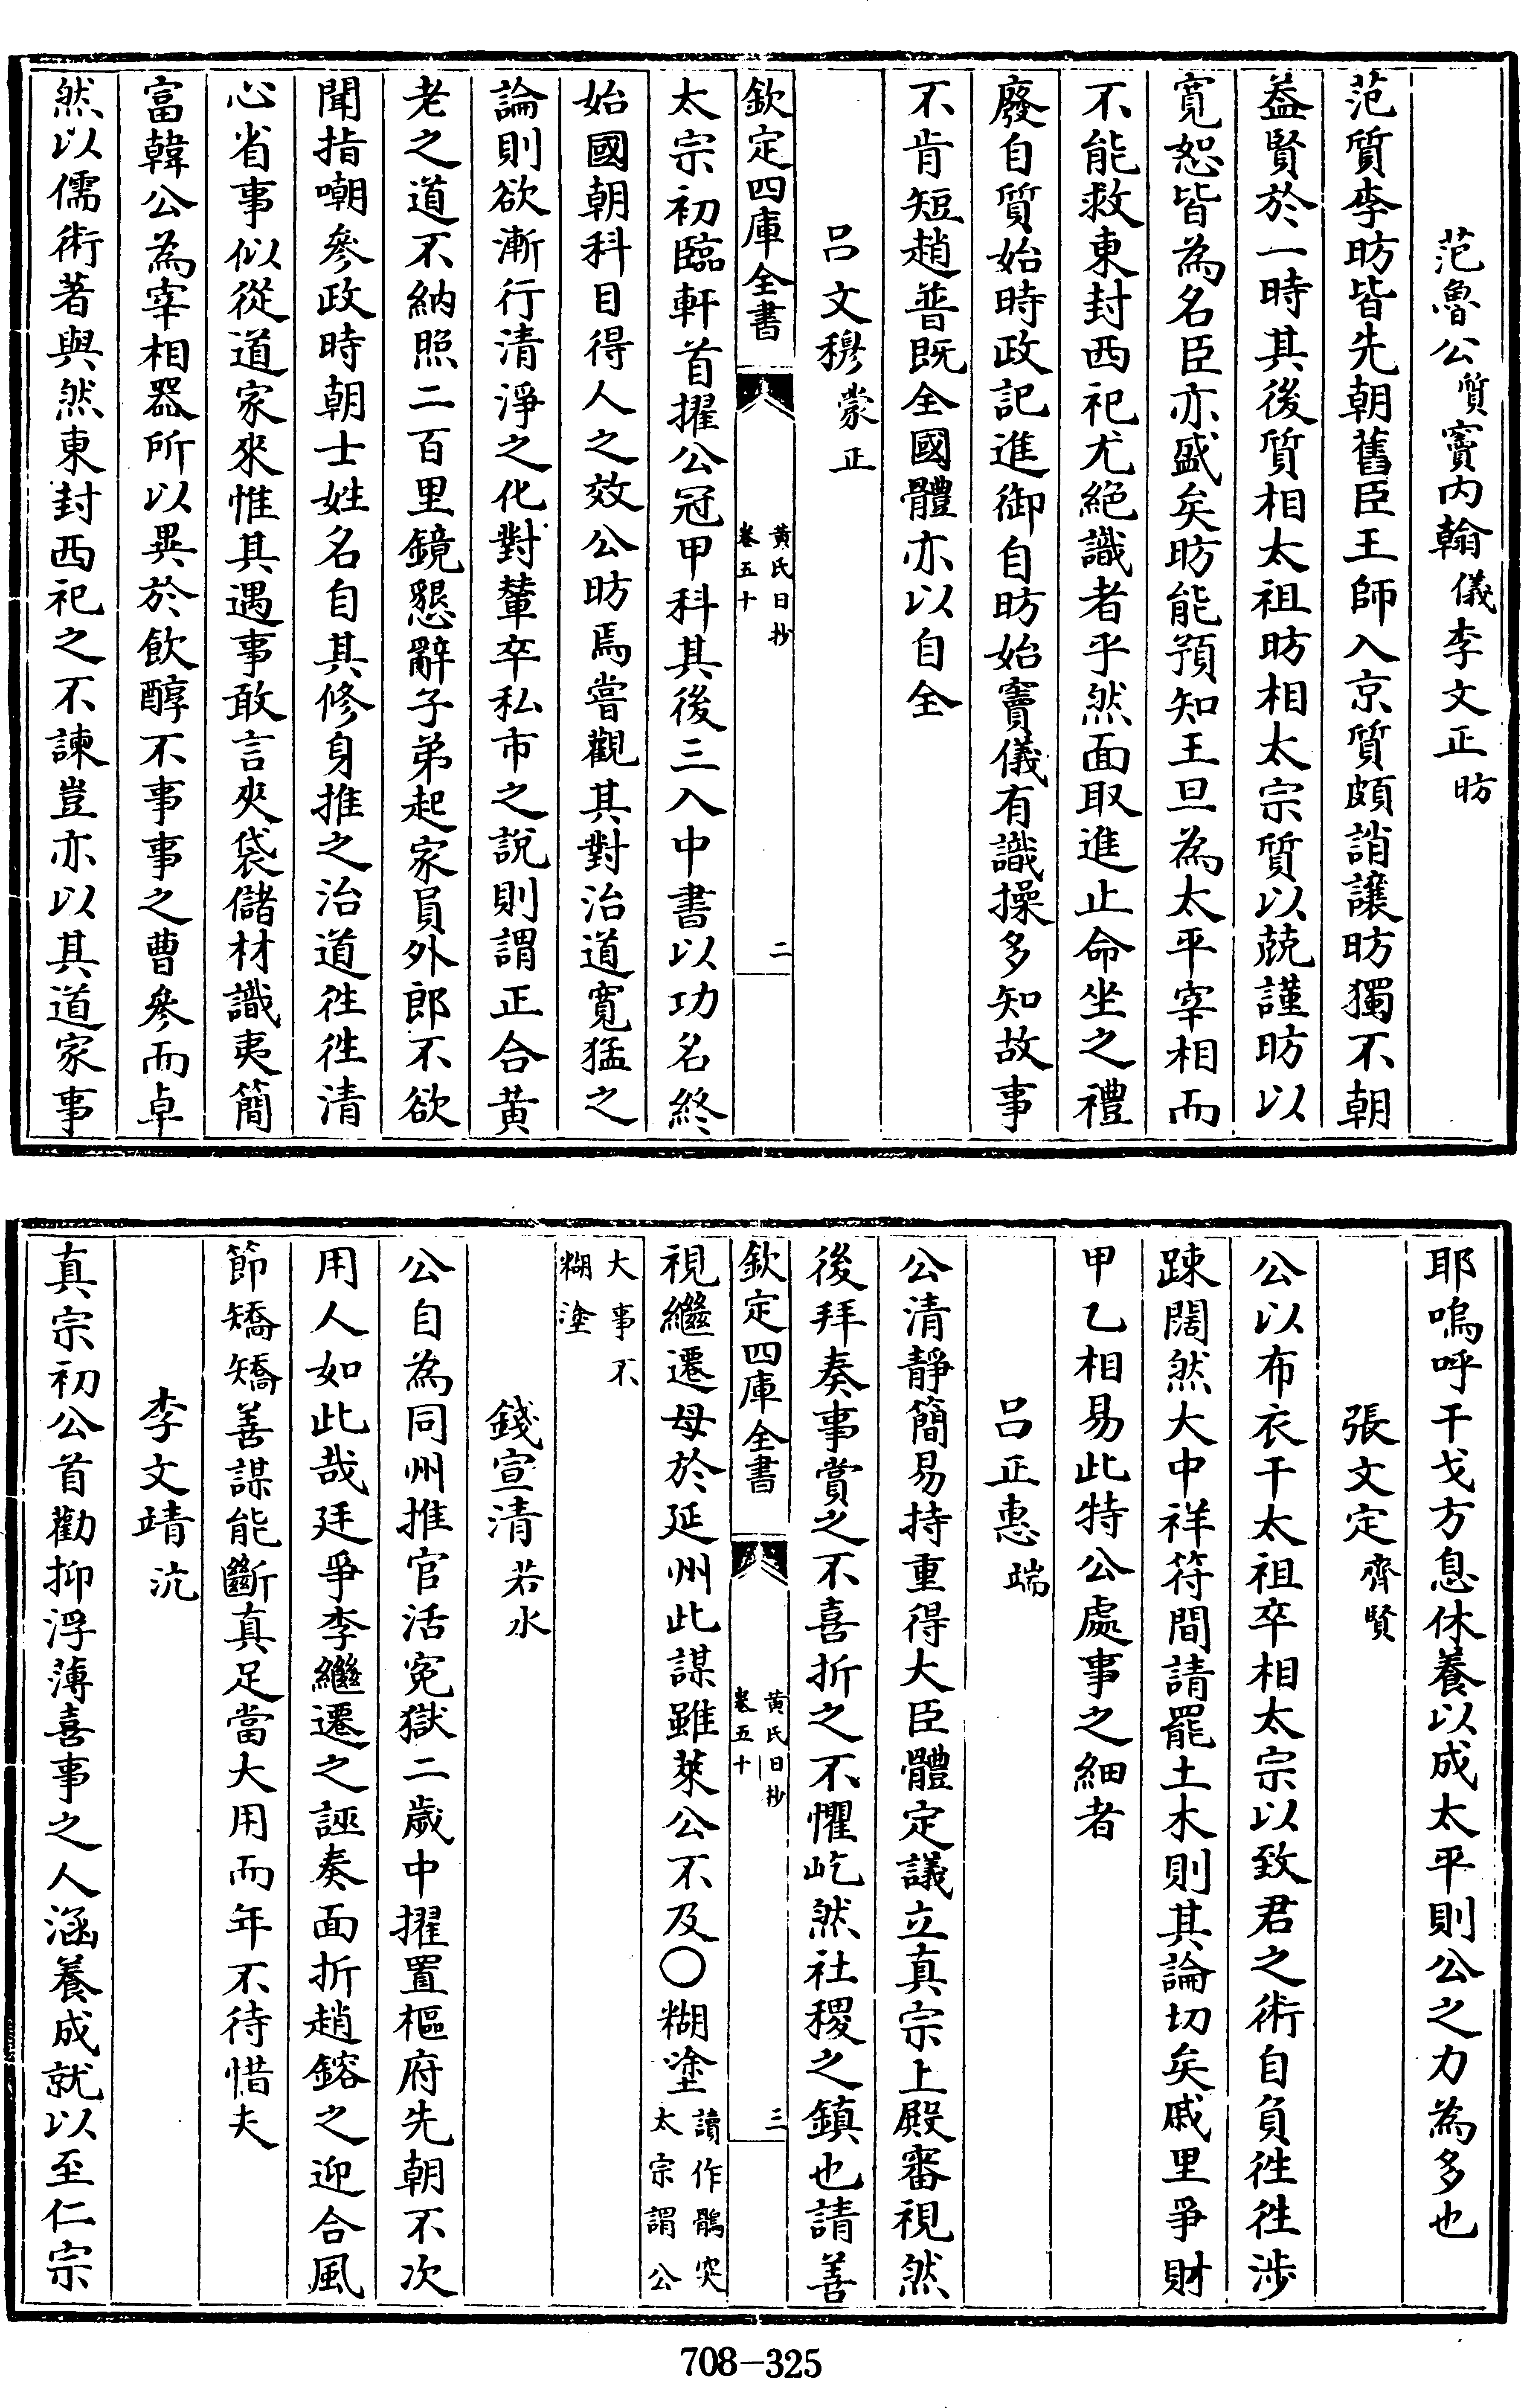 范魯公質竇内翰儀李文正昉
范質李昉皆先朝舊臣王師入京質頗誚讓昉獨不朝
益賢於一時其後質相太祖昉相太宗質以兢謹昉以
寛恕皆為名臣亦盛矣昉能預知王旦為太平宰相而
不能救東封西祀尤絶識者乎然面取進止命坐之禮
廢自質始時政記進御自昉始竇儀有識操多知故事
不肯短趙普既全國體亦以自全
吕文穆蒙正
欽定四庫全書
黄氏日抄
卷五十
二
太宗初臨軒首擢公冠甲科其後三入中書以功名終
始國朝科目得人之效公昉焉嘗觀其對治道寛猛之
論則欲漸行清淨之化對輦卒私市之説則謂正合黄
老之道不納照二百里鏡懇辭子弟起家員外郎不欲
聞指嘲參政時朝士姓名自其修身推之治道徃徃清
心省事似從道家來惟其遇事敢言夾袋儲材識夷簡
富韓公為宰相器所以異於飲醇不事事之曹參而卓
然以儒術著與然東封西祀之不諫豈亦以其道家事
耶嗚呼干戈方息休養以成太平則公之力為多也
張文定齊賢
公以布衣干太祖卒相太宗以致君之術自負徃徃涉
踈闊然大中祥符間請罷土木則其論切矣戚里爭財
甲乙相易此特公處事之細者
吕正惠端
公清靜簡易持重得大臣體定議立真宗上殿審視然
後拜奏事賞之不喜折之不懼屹然社稷之鎮也請善
欽定四庫全書
黄氏日抄
卷五十
三
視繼遷母於延州此謀雖萊公不及○糊塗讀作鶻突
太宗謂公
大事不
糊塗
錢宣清若水
公自為同州推官活寃獄二歳中擢置樞府先朝不次
用人如此哉廷爭李繼遷之誣奏面折趙鎔之迎合風
節矯矯善謀能斷真足當大用而年不待惜夫
李文靖沆
真宗初公首勸抑浮薄喜事之人涵養成就以至仁宗
708-325